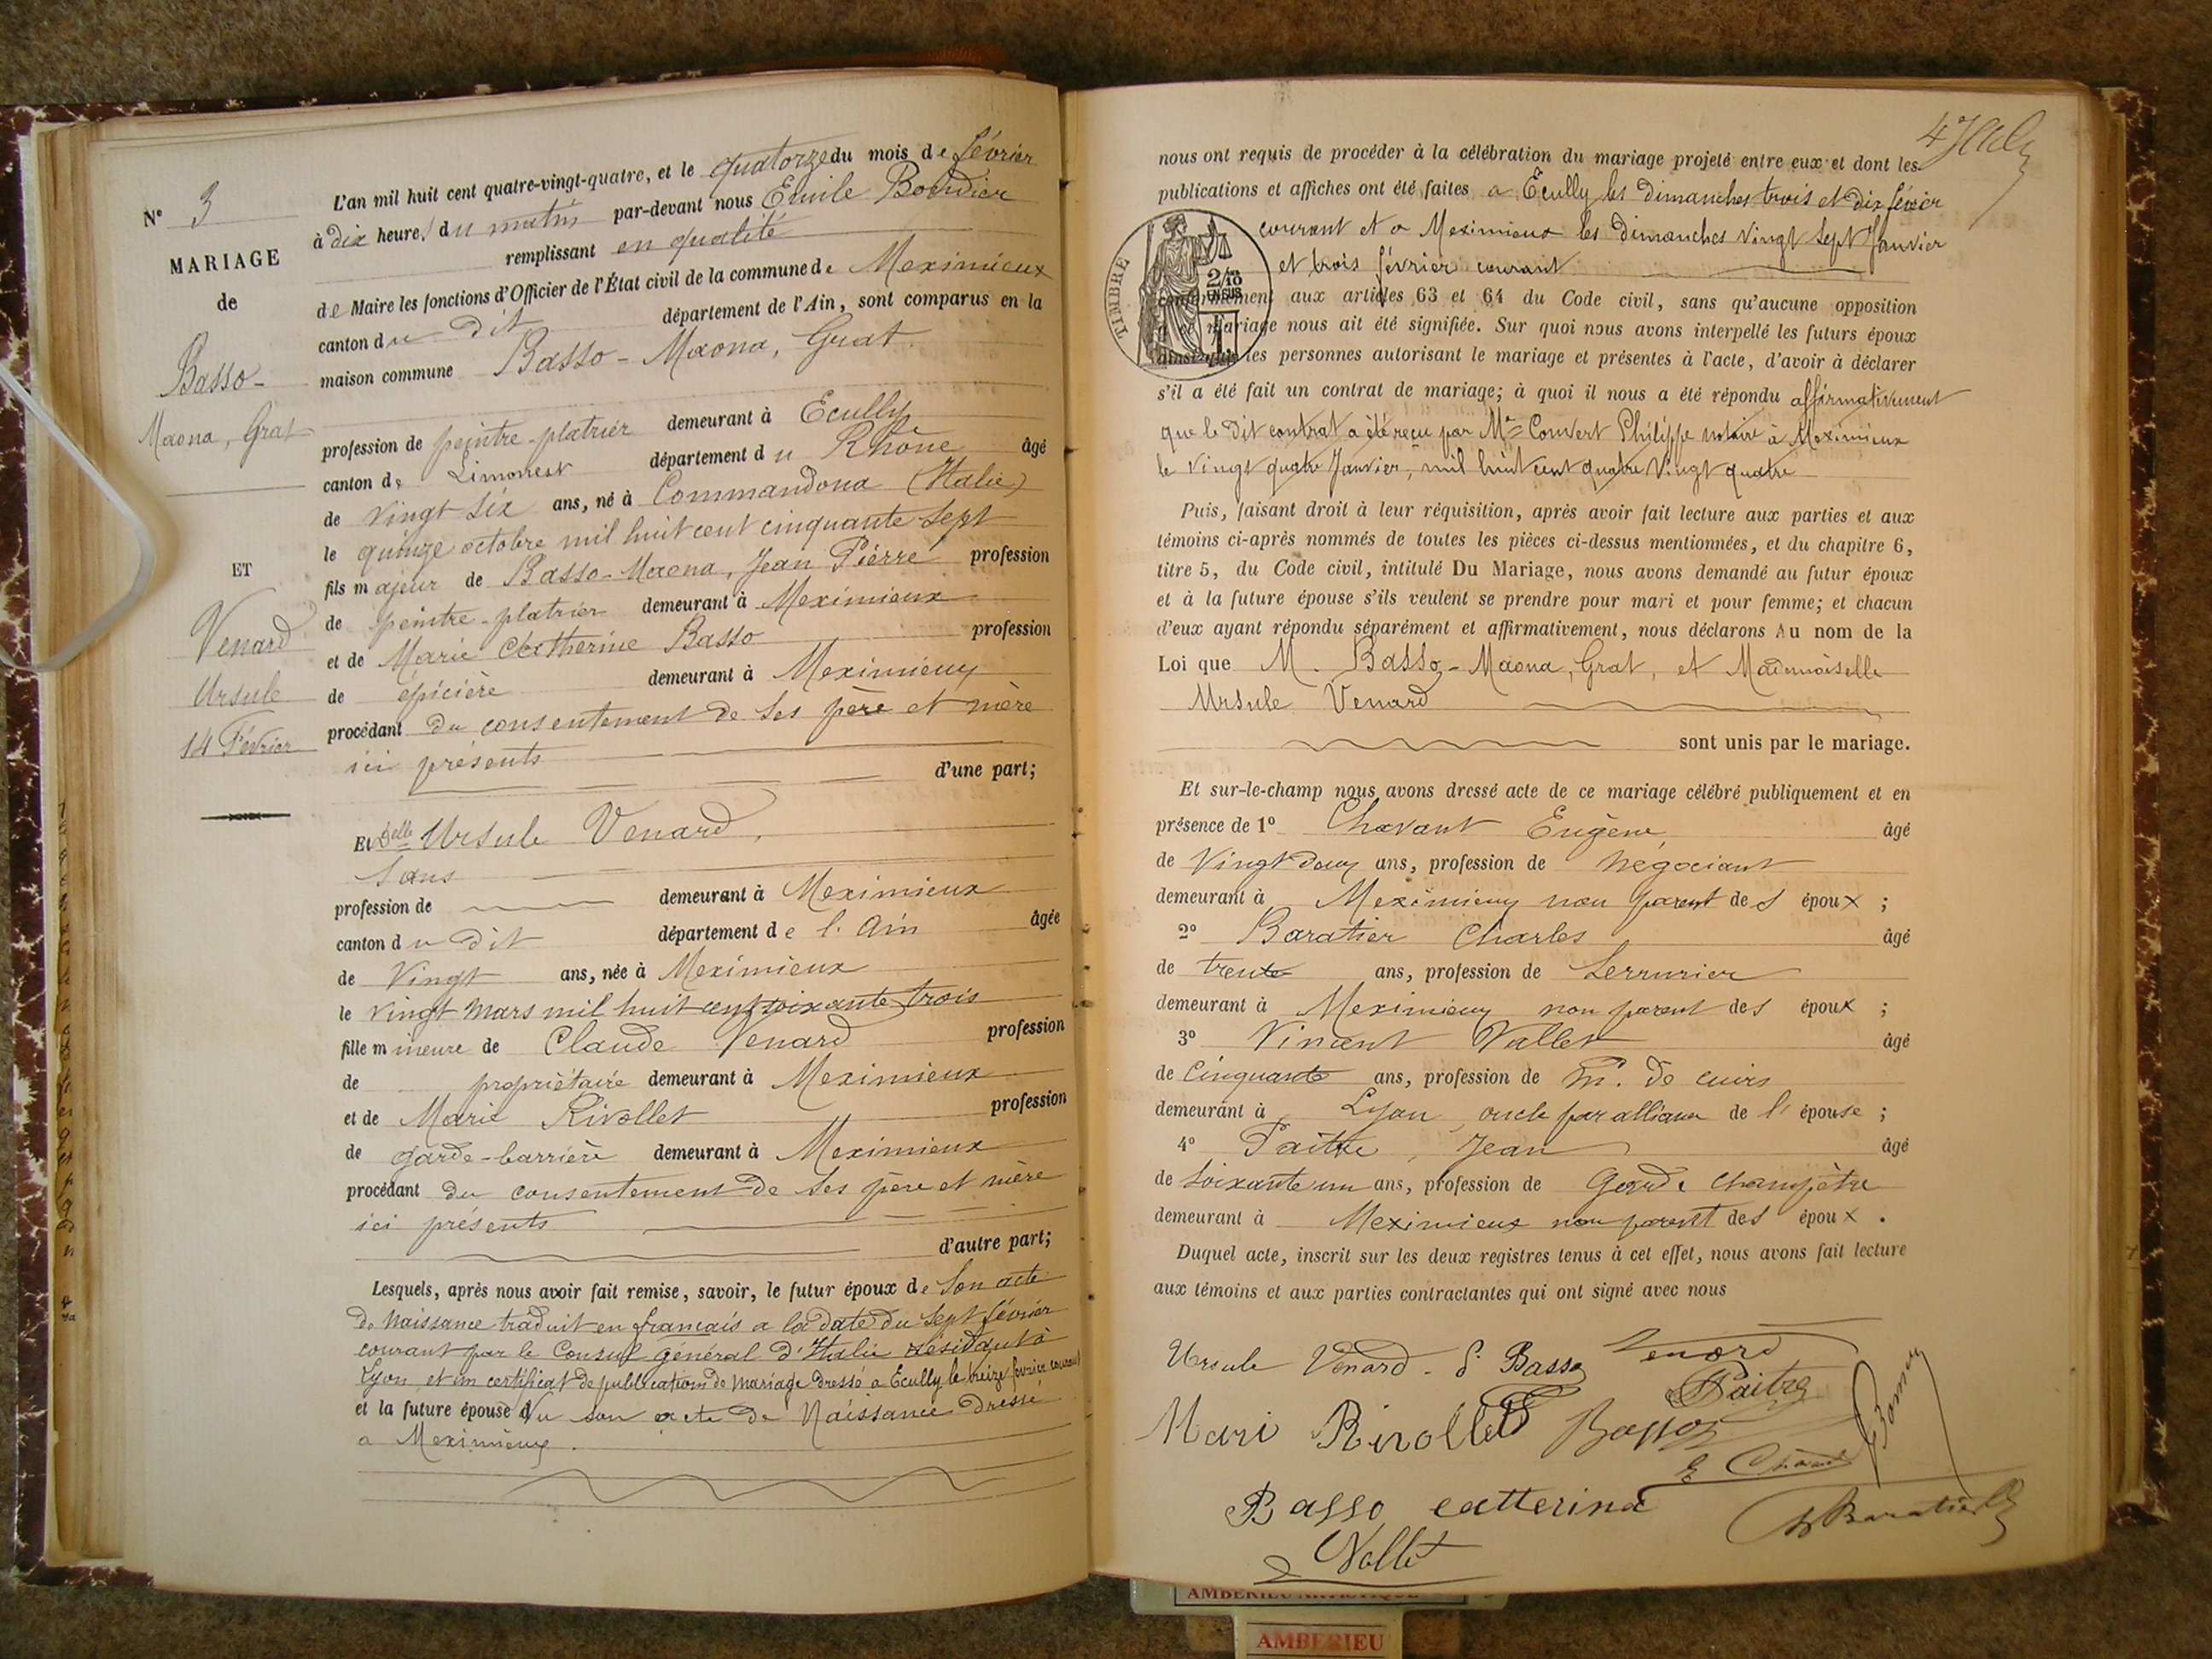 N° 3
MARIAGE
de
Basso-
Maona, Grat
ET
Venard
Ursule
14 Février
L'an mil huit cent quatre-vingt-quatre, et le quatorze du mois de février
à dix heures du matin par-devant nous Emile
remplissant en qualité
de Maire les fonctions d'Officier de l'État civil de la commune de Meximieux
canton du dit département de l'Ain, sont comparus en la
maison commune Basso-Maona, Grat
profession de peintre-platrier demeurant à Ecully
canton de Limonest département du Rhône âgé
de vingt six ans, né à Commandona (Italie)
le quinze octobre mil huit cent cinquante sept
fils majeur de Basso-Maona, Jean Pierre profession
de peintre-platrier demeurant à Meximieux
et de Marie Catherine Basso profession
de épicière demeurant à Meximieux
procédant du consentement de ses père et mère
ici présents
d'une part;
Et Delle Ursule Venard,
Sans
profession de demeurant à Meximieux
canton du dit département de l'Ain âgée
de Vingt ans, née à Meximieux
le vingt mars mil huit cent soixante trois
fille mineure de Claude Venard profession
de propriétaire demeurant à Meximieux
et de Marie Rivollet profession
de garde-barrière demeurant à Meximieux
procédant du consentement de ses père et mère
ici présents
d'autre part;
Lesquels, après nous avoir fait remise, savoir, le futur époux de son acte
de Naissance traduit en français a la date du sept février
courant par le Consul général d'Italie résidant à
Lyon et un certificat de publication de mariage dressé a Ecully le treize février courant
et la future épouse du son acte de Naissance dressé
a Meximieux.
nous ont requis de procéder à la célébration du mariage projeté entre eux et dont les
publications et affiches ont été faites a Ecully les dimanches trois et dix février
courant et a Meximieux les dimanches vingt sept Janvier
et trois février courant
TIMBRE
2/10
EN SUS
conformément aux articles 63 et 64 du Code civil, sans qu'aucune opposition
à ce mariage nous ait été signifiée. Sur quoi nous avons interpellé les futurs époux
ainsi que les personnes autorisant le mariage et présentes à l'acte, d'avoir à déclarer
s'il a été fait un contrat de mariage; à quoi il nous a été répondu affirmativement
que le dit contrat a été reçu par Me Convert Philippe notaire à Meximieux
le vingt quatre Janvier, mil huit cent quatre vingt quatre
Puis, faisant droit à leur réquisition, après avoir fait lecture aux parties et aux
témoins ci-après nommés de toutes les pièces ci-dessus mentionnées, et du chapitre 6,
titre 5, du Code civil, intitulé Du Mariage, nous avons demandé au futur époux
et à la future épouse s'ils veulent se prendre pour mari et pour femme; et chacun
d'eux ayant répondu séparément et affirmativement, nous déclarons Au nom de la
Loi que M. Basso-Maona, Grat, et Mademoiselle
Ursule Venard
sont unis par le mariage.
Et sur-le-champ nous avons dressé acte de ce mariage célébré publiquement et en
présence de 1° Chavant Eugène âgé
de Vingt deux ans, profession de négociant
demeurant à Meximieux non parent des époux ;
2° Baratier Charles âgé
de trente ans, profession de Serrurier
demeurant à Meximieux non parent des époux ;
3° Vincent Vallet âgé
de Cinquante ans, profession de M. de cuirs
demeurant à Lyon, oncle par alliance de l'épouse ;
4° Paitre, Jean âgé
de Soixante un ans, profession de Garde Champêtre
demeurant à Meximieux non parent des époux .
Duquel acte, inscrit sur les deux registres tenus à cet effet, nous avons fait lecture
aux témoins et aux parties contractantes qui ont signé avec nous
Ursule Venard Basso Venard
Paitre
Mari Rivollet Basso
E Chavant
Basso catterina
Baratier
Vallet
AMBERIEU